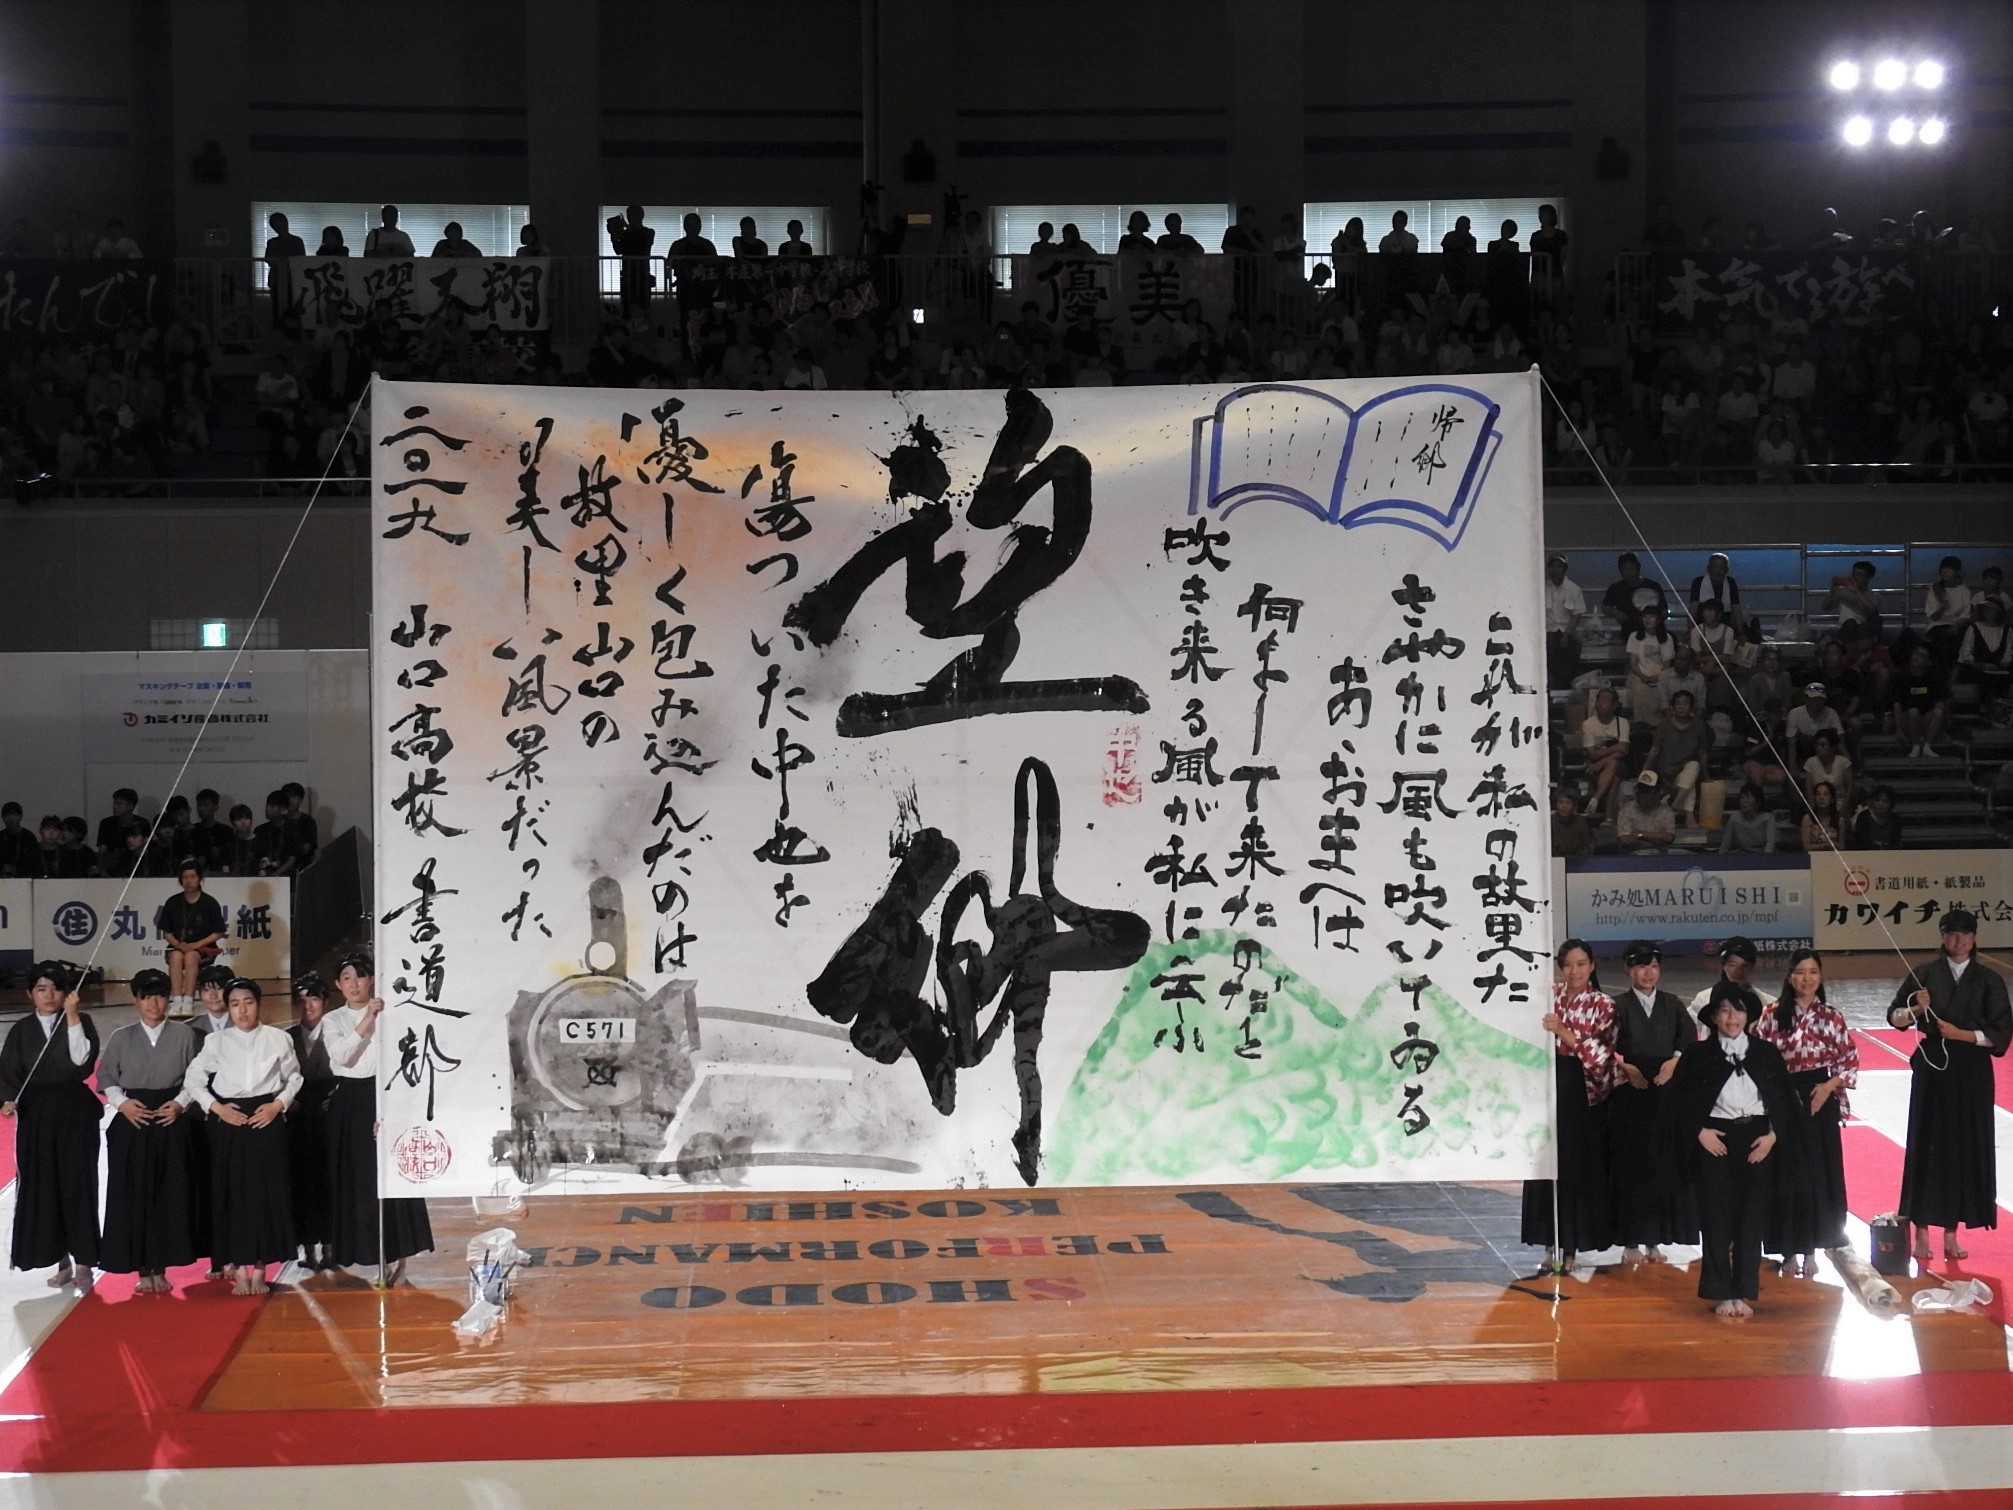 帰郷
これが私の故里だ
さやかに風も吹いてゐる
あゝおまへは
何をして来たのだと
吹き来る風が私に云ふ
傷ついた中也を
優しく包み込んだのは
故里山口の
美しい風景だった
二〇一九 山口高校 書道部
C571
飛躍天翔
優美
本気で遊べ
たんでい!
マスキングテープ 企画・製造・販売
カミイソ産商株式会社
丸住製紙
かみ処MARUISHI
http://www.rakuten.co.jp/mpf
書道用紙・紙製品
カワイチ株式会
SHODO
PERFORMANCE
KOSHIEN